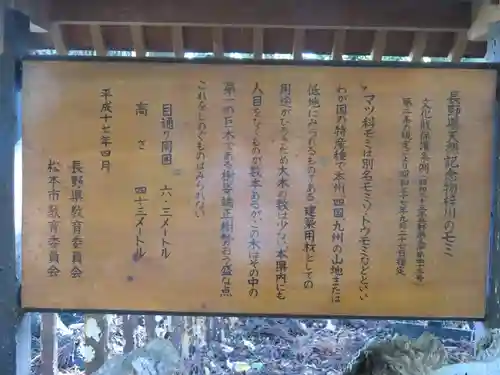 長野県天然記念物 桂川のモミ
文化財保護条例(昭和三十
第二条の規定により昭和三十七年九月二十七日指定
マツ科モミは別名モミソ、トウモミなどといい
わが国の特産種で本州、四国、九州の山地または
低地にみられるものである。建築用材としての
用途がひろいため大木の数は少ない。本県内にも
人目をひくものが数本あるが、この木はその中の
第一の巨木である。樹姿端正、樹勢旺盛な点
これをしのぐものはみられない
目通り周囲 六・三メートル
高さ 四十三メートル
平成十七年四月
長野県教育委員会
松本市教育委員会